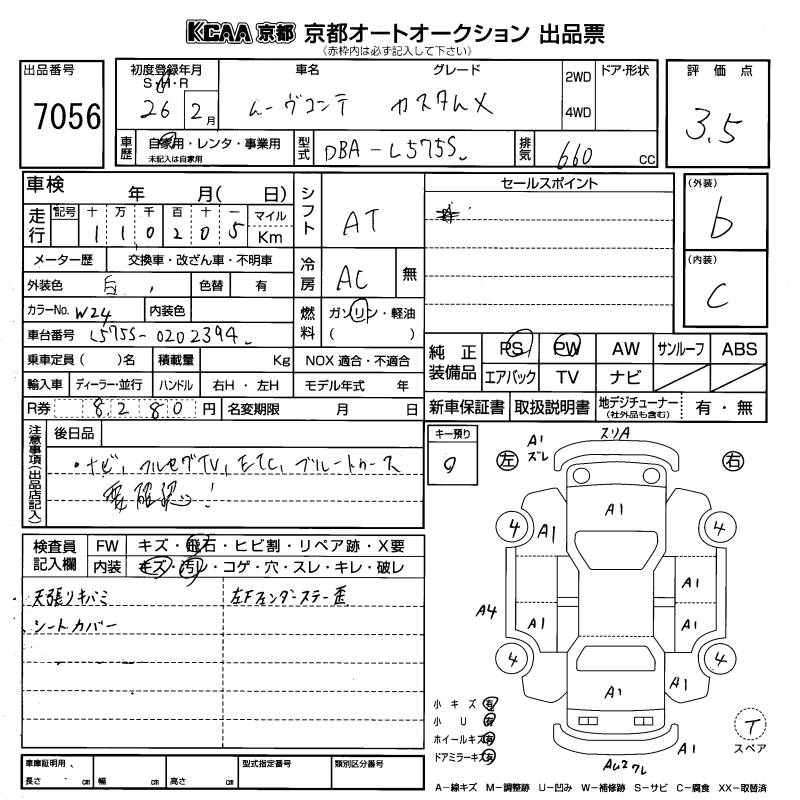 KCAA 京都 京都オートオークション 出品票
(赤枠内は必ず記入して下さい)
出品番号
7056
初度登録年月
S・H・R
26 2月
車名
ムーヴコンテ
グレード
カスタムX
2WD
4WD
ドア・形状
車歴
自家用・レンタ・事業用
未記入は自家用
型式
DBA-L575S
排気
660 CC
評価点
3.5
車検
年 月( 日)
走行
記号 十 万 千 百 十 一 マイル
1 1 0 2 0 5 Km
メーター歴 交換車・改ざん車・不明車
外装色 白 色替 有
カラーNo. W24 内装色
車台番号 L575S-0202394
乗車定員( )名 積載量 Kg
輸入車 ディーラー・並行 ハンドル 右H・左H
R券 8280円 名変期限 月 日
シフト
AT
冷房
AC 無
燃料
ガソリン・軽油
( )
NOX 適合・不適合
モデル年式 年
セールスポイント
(外装)
b
(内装)
C
純正装備品
PS PW AW サンルーフ ABS
エアバック TV ナビ
新車保証書 取扱説明書 地デジチューナー(社外品も含む) 有・無
注意事項(出品店記入)
後日品
・ナビ、フルセグTV、ETC、ブルートゥース
要確認!
キー預り
検査員記入欄
FW キズ・飛石・ヒビ割・リペア跡・X要
内装 キズ・汚レ・コゲ・穴・スレ・キレ・破レ
天張りキバミ
左Fフェンダーステー歪
シートカバー
左
右
A1
ズレ
スリA
A1
4
A1
4
A1
A4
A1
A1
4
4
A1
A1
A1
AU2 ワレ
小キズ 有
小U 有
ホイールキズ 有
ドアミラーキズ 有
T
スペア
車庫証明用、
長さ cm 幅 cm 高さ cm
型式指定番号
類別区分番号
A−線キズ M−調整跡 U−凹み W−補修跡 S−サビ C−腐食 XX−取替済